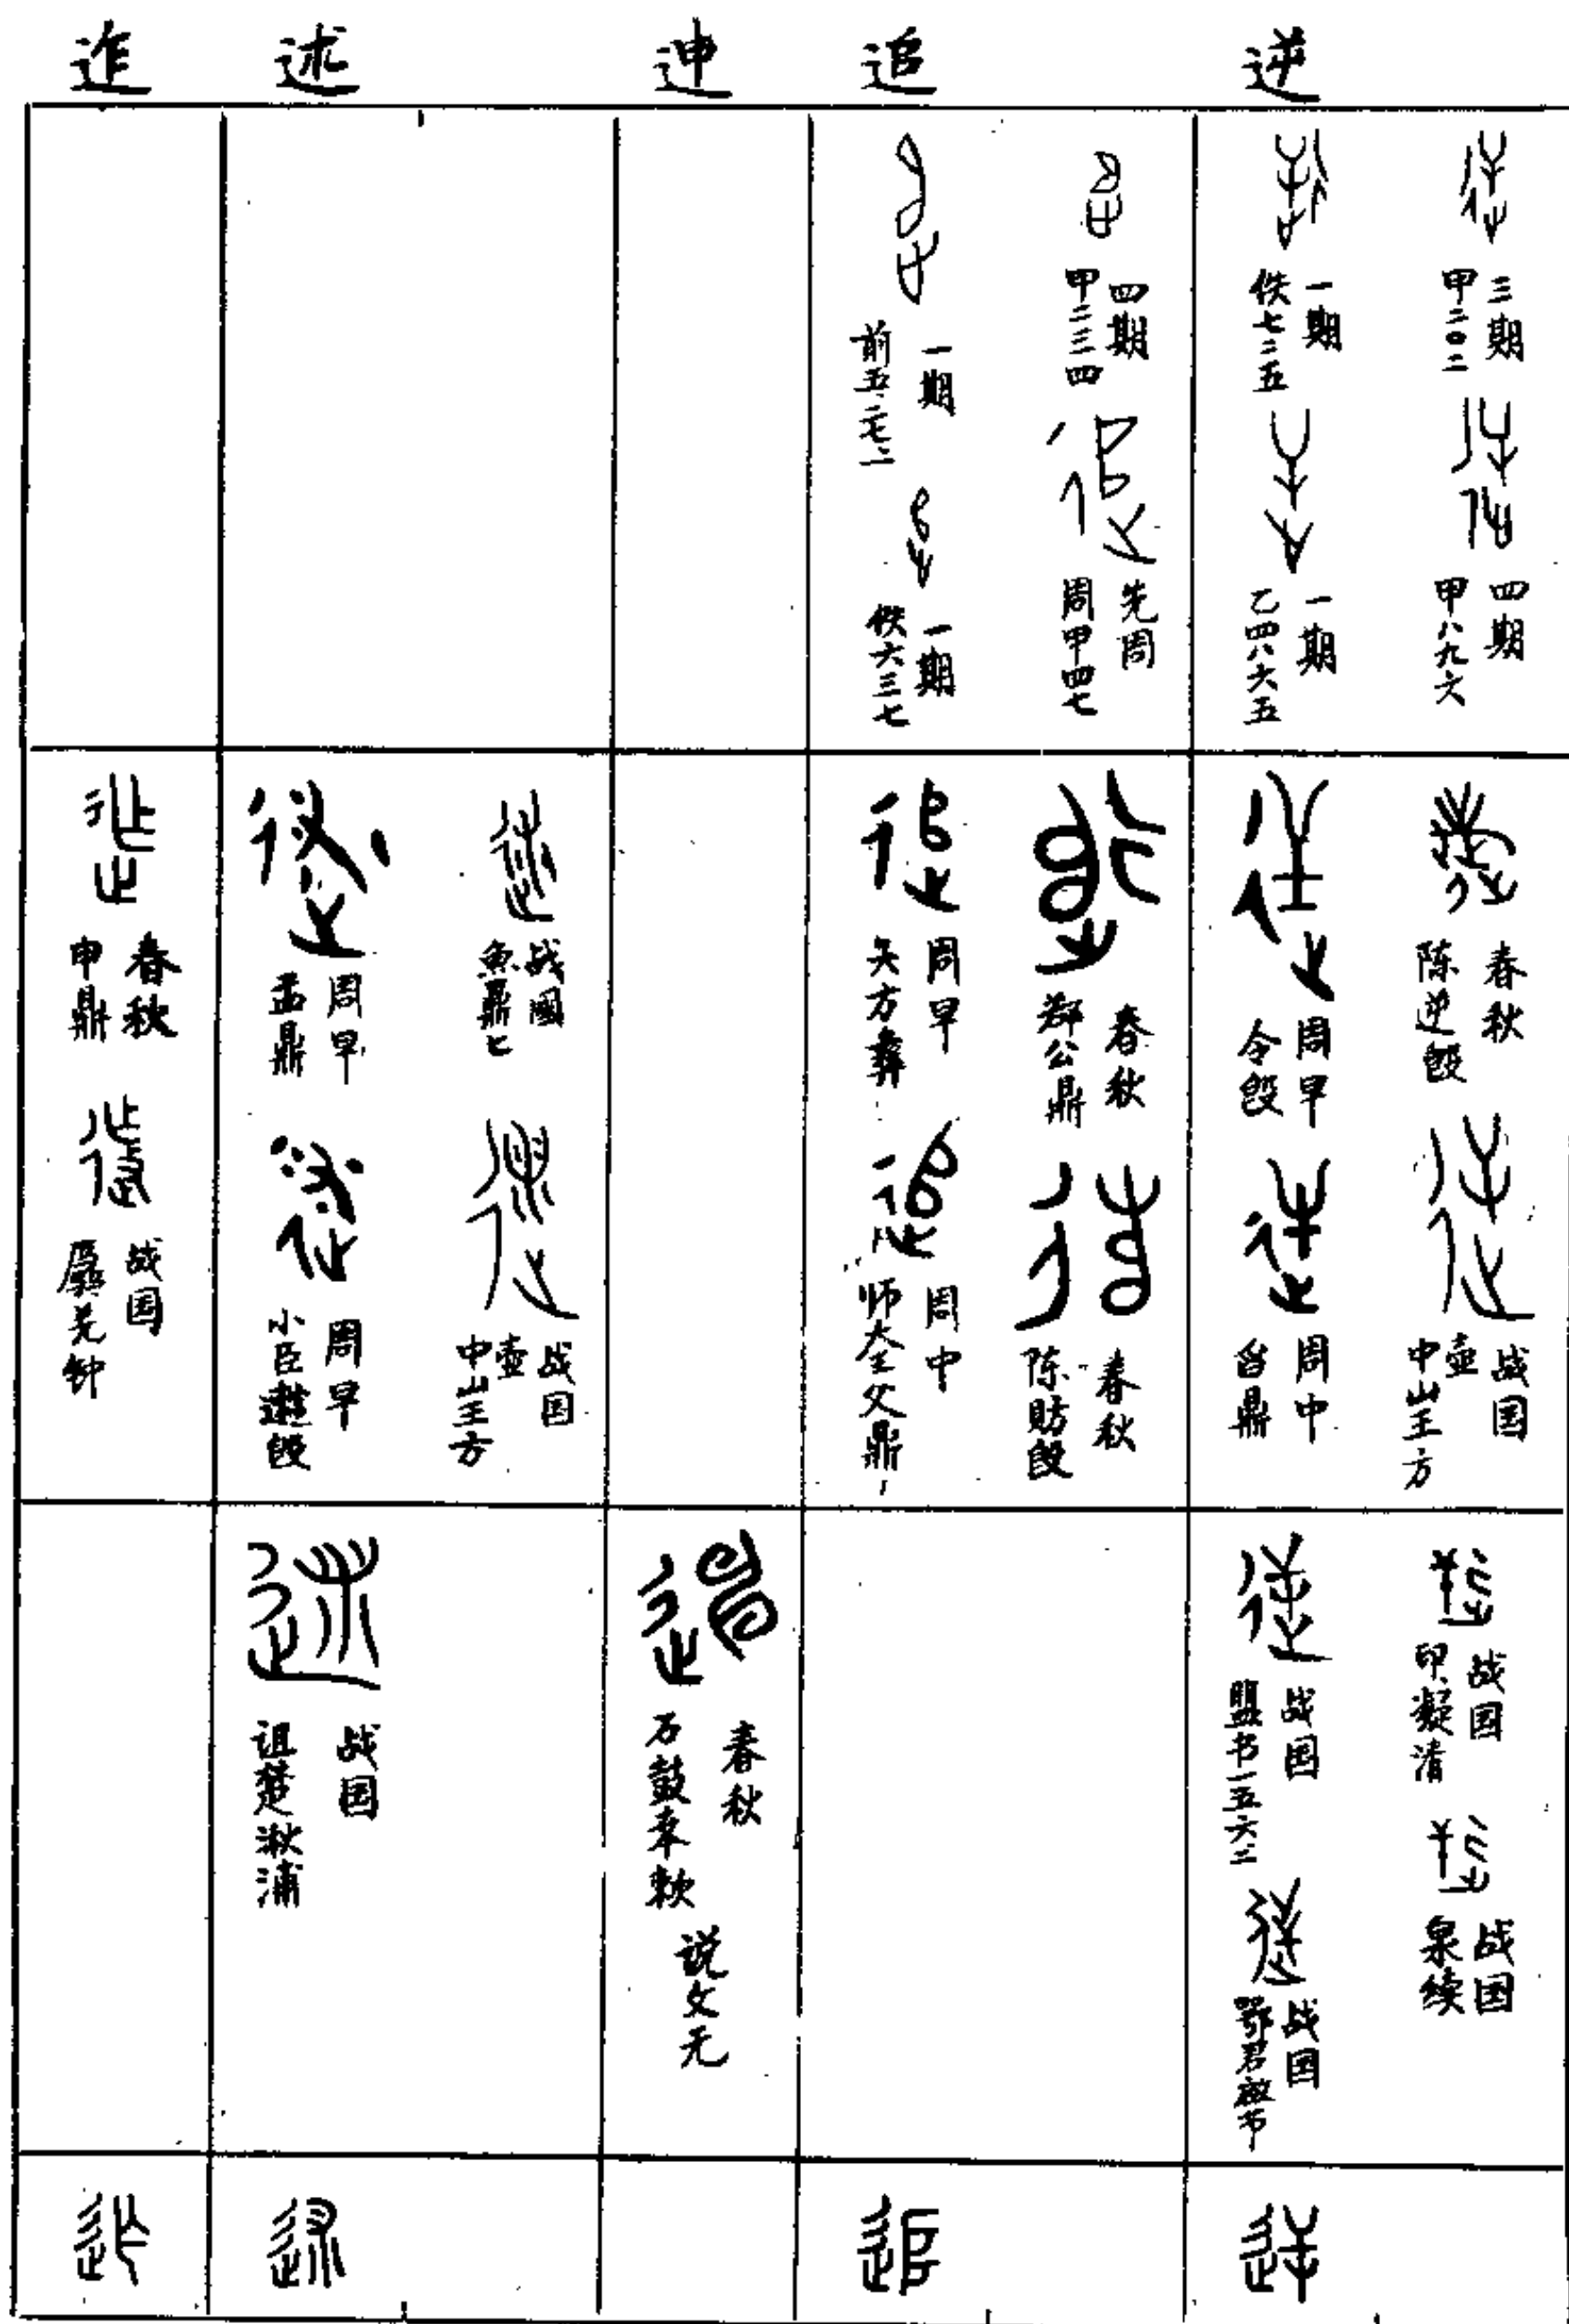 逆
追
迧
述
迮
三期
甲二〇二
四期
甲八九六
一期
佚七二五
一期
乙四八六五
四期
甲二三四
先周
周甲四七
一期
前五·二七·一
一期
佚六三七
春秋
陈逆𣪘
战国
中山王方壶
周早
令𣪘
周中
舀鼎
春秋
郑公鼎
春秋
陈肪𣪘
周早
矢方彝
周中
师𡘇父鼎
战国
鱼鼎匕
战国
中山王方壶
周早
盂鼎
周早
小臣𣪘
春秋
申鼎
战国
羌钟
战国
印凝清
战国
泉续
战国
盟书一五六·二
战国
鄂君启节
春秋
石鼓奉敕
说文无
战国
诅楚湫浦